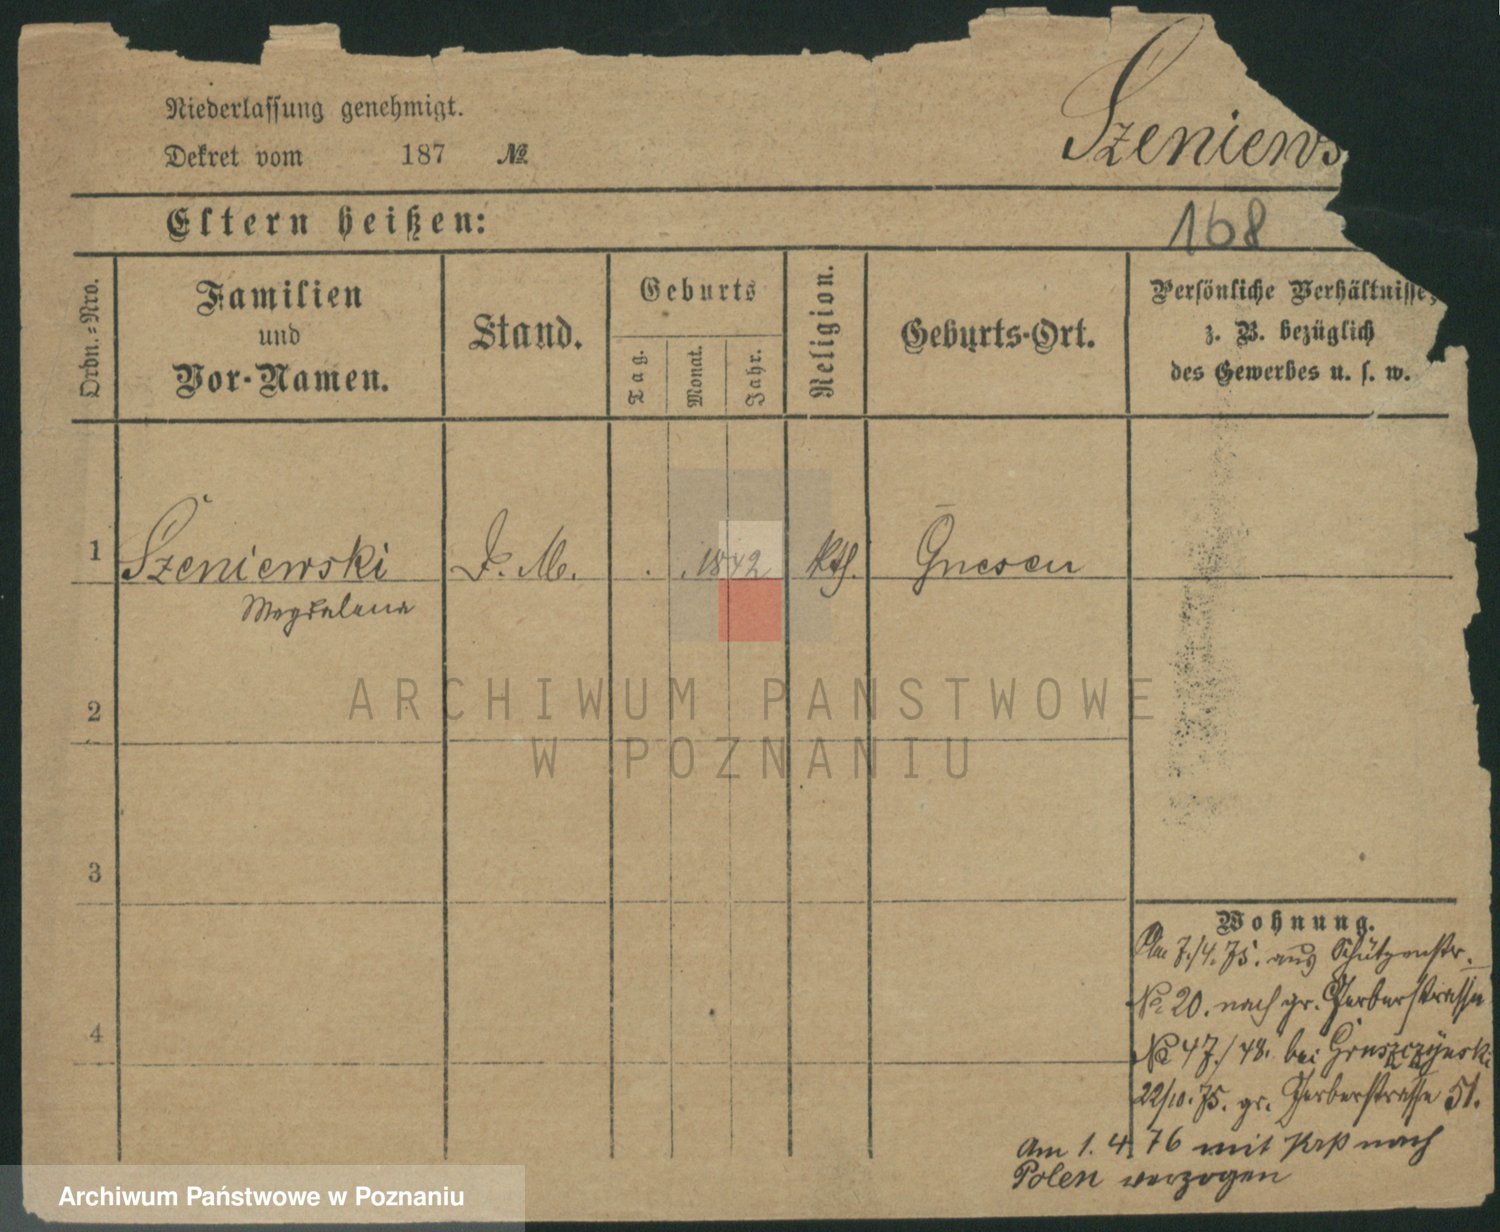 Niederlassung genehmigt.
Dekret vom 187 №
Szeniews
Eltern heißen:
168
Ordn.-Nro.
Familien
und
Vor-Namen.
Stand.
Geburts
Tag.
Monat.
Jahr.
Religion.
Geburts-Ort.
Persönliche Verhältnisse,
z. B. bezüglich
des Gewerbes u. s. w.
1 Szeniewski D. M. . . 1842 kth. Gnesen
Magdalena
2
3
4
Wohnung.
Am 7./4. 75. aus Schützenstr.
No 20. nach gr. Gerberstrasse
No 47/48. bei Gruszczynski
22/10. 75. gr. Gerberstrasse 51.
Am 1. 4. 76 mit Paß nach
Polen verzogen
ARCHIWUM PANSTWOWE
W POZNANIU
Archiwum Państwowe w Poznaniu